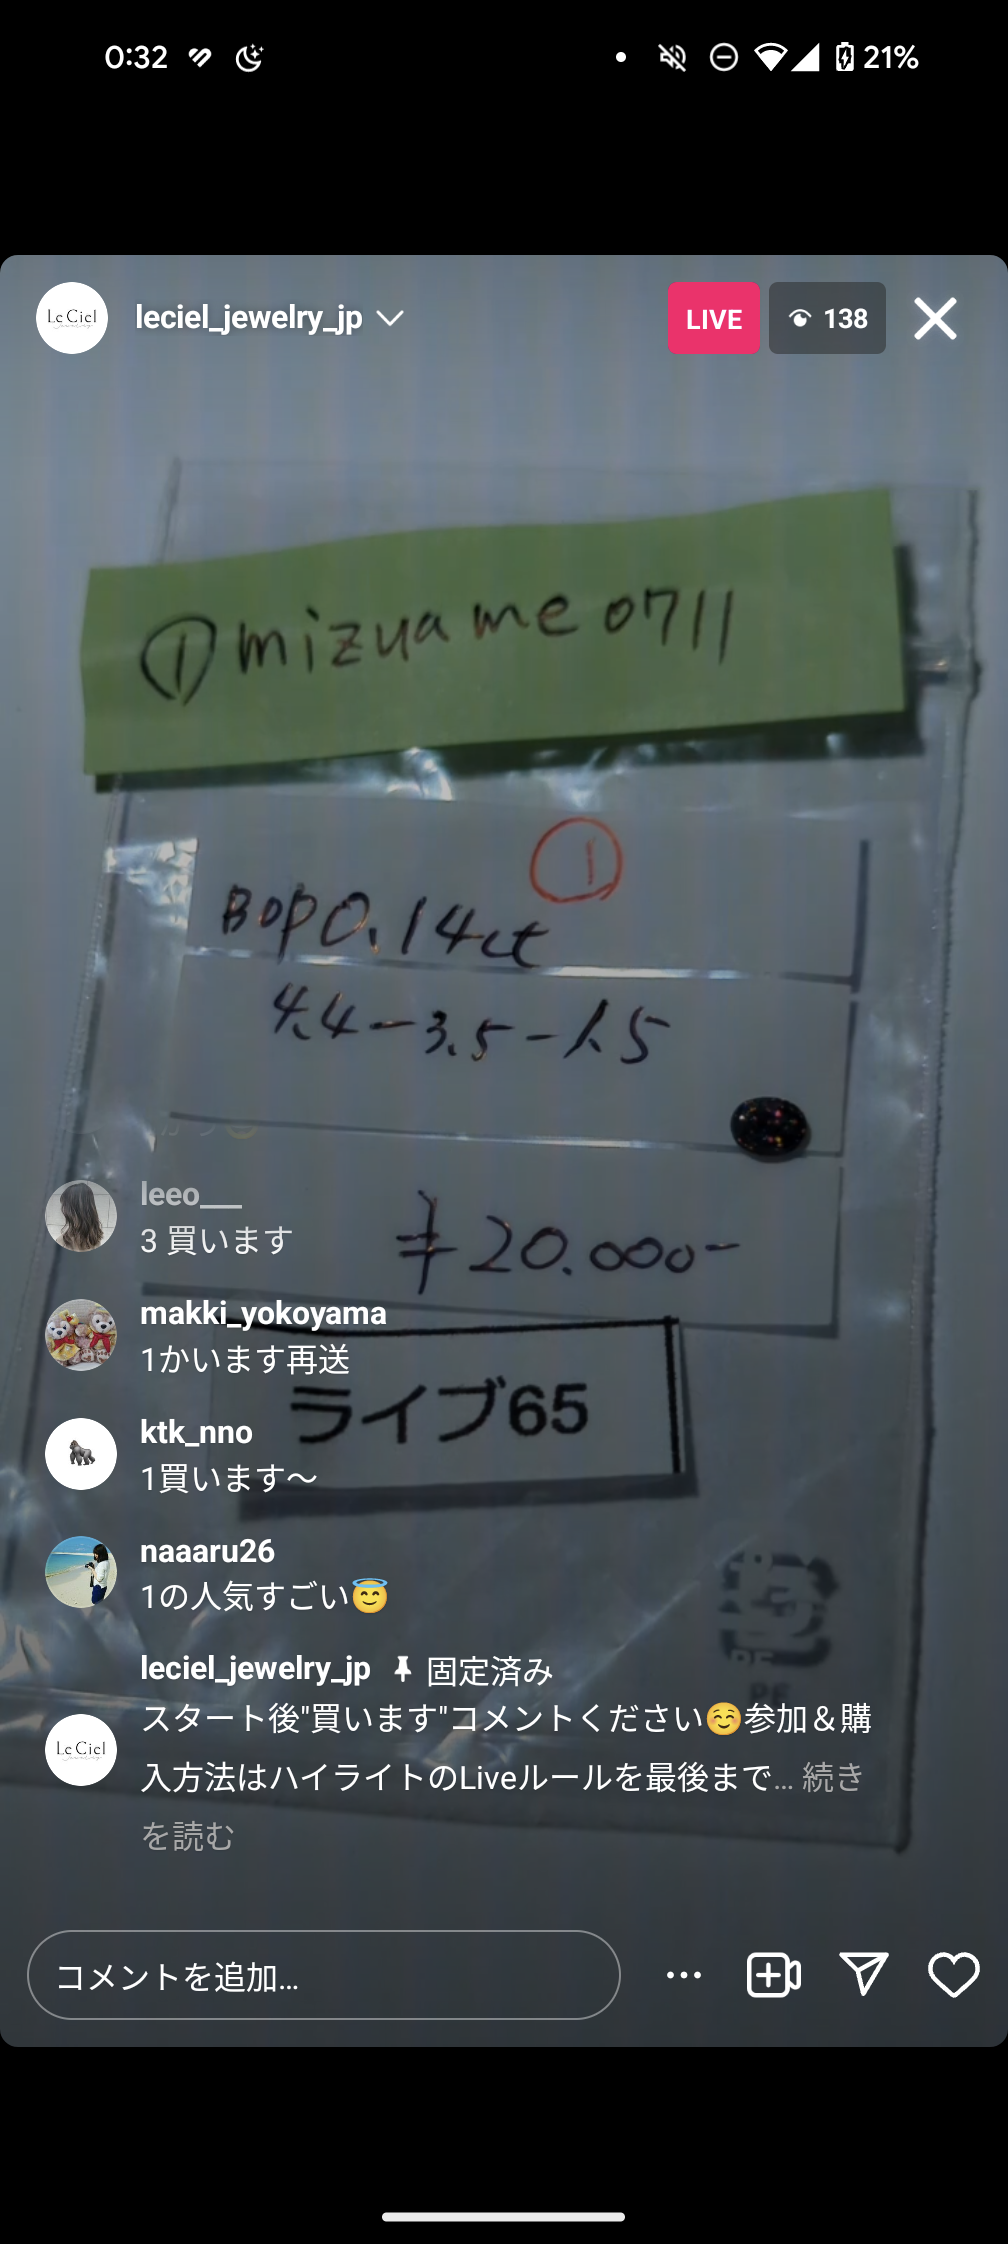 0:32
21%
Le Ciel
leciel_jewelry_jp
LIVE
138
①mizuame0711
①
BOP0.14ct
4.4-3.5-1.5
¥20.000-
ライブ65
leeo___
3 買います
makki_yokoyama
1かいます再送
ktk_nno
1買います〜
naaaru26
1の人気すごい😇
leciel_jewelry_jp 固定済み
Le Ciel
スタート後"買います"コメントください☺️参加＆購
入方法はハイライトのLiveルールを最後まで... 続き
を読む
コメントを追加...